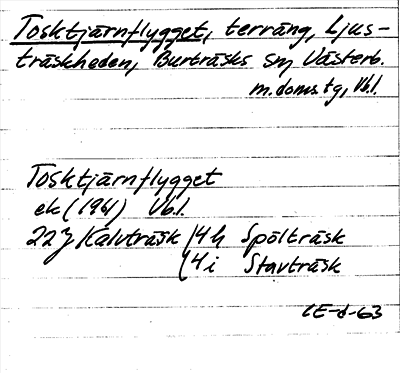 Tosktjärnflygget, terräng, Ljus-
träskheden, Burträsks sn, Västerb.
m. doms. tg, Vb.l.
Tosktjärnflygget
ek (1961) Vb.l.
22J Kalvträsk 4h Spölträsk
4i Stavträsk
LE-d-63